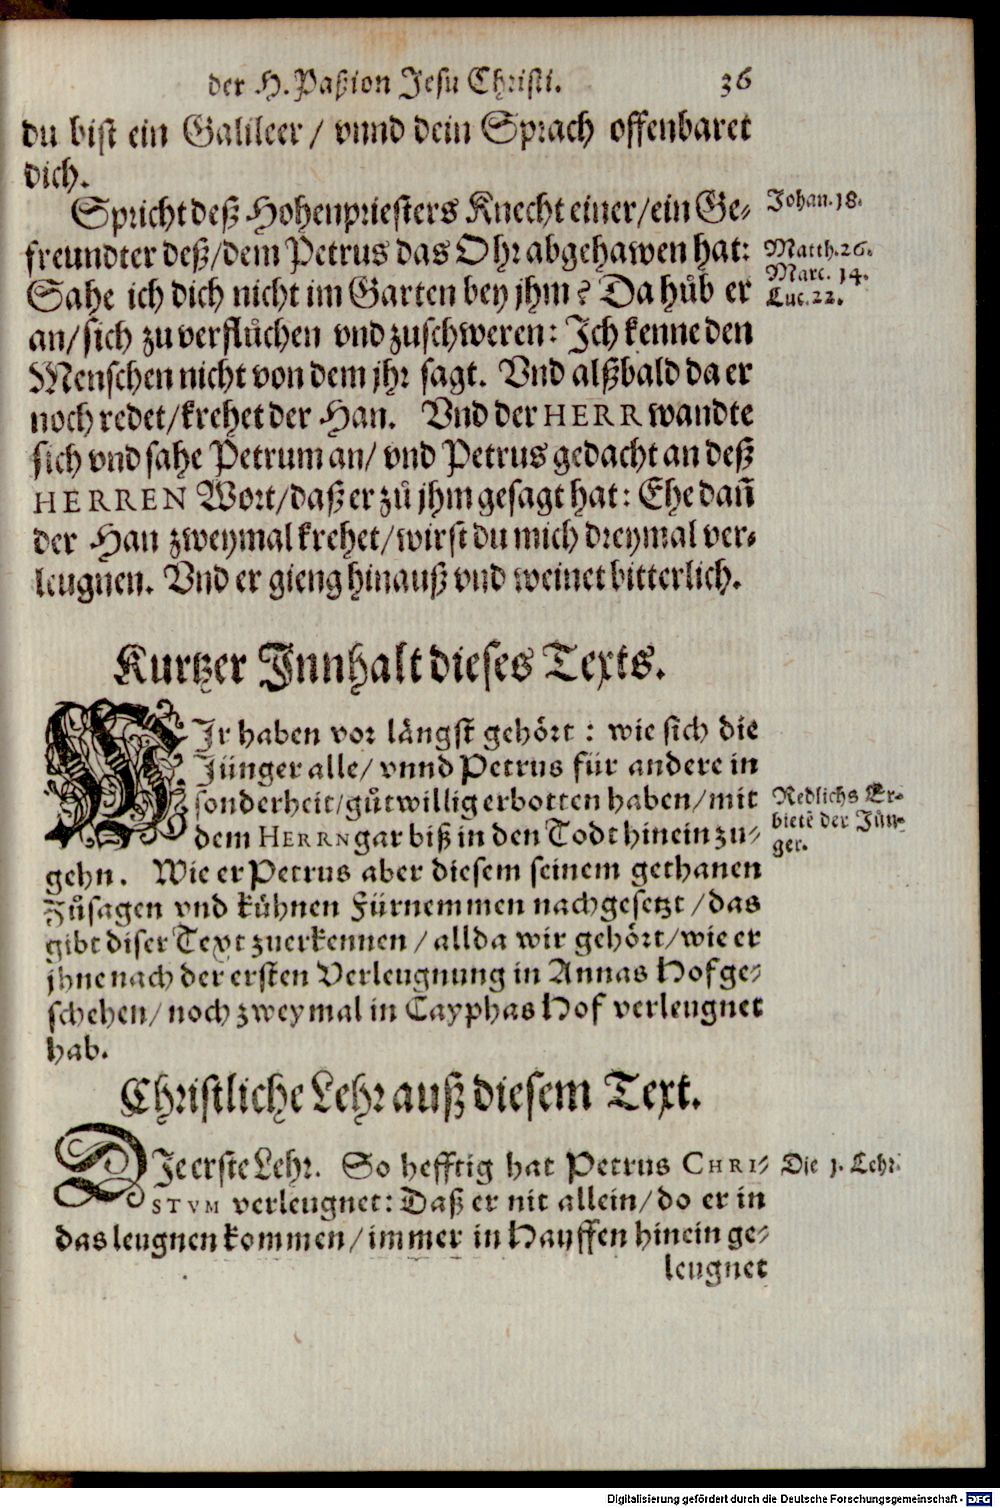 der H. Paßion Jesu Christi. 36
du bist ein Galileer / vnnd dein Sprach offenbaret
dich.
Spricht deß Hohenpriesters Knecht einer/ein Ge-
freundter deß/dem Petrus das Ohr abgehawen hat:
Sahe ich dich nicht im Garten bey jhm? Da hůb er
an/sich zu verflůchen vnd zuschweren: Ich kenne den
Menschen nicht von dem jhr sagt. Vnd alßbald da er
noch redet/krehet der Han. Vnd der HERR wandte
sich vnd sahe Petrum an/ vnd Petrus gedacht an deß
HERREN Wort/daß er zů jhm gesagt hat: Ehe dañ
der Han zweymal krehet/wirst du mich dreymal ver-
leugnen. Vnd er gieng hinauß vnd weinet bitterlich.
Johan. 18.
Matth. 26.
Marc. 14.
Luc. 22.
Kurtzer Innhalt dieses Texts.
WIr haben vor längst gehört: wie sich die
Jünger alle/ vnnd Petrus für andere in
sonderheit/gůtwillig erbotten haben/mit
dem HERRN gar biß in den Todt hinein zu-
gehn. Wie er Petrus aber diesem seinem gethanen
Zůsagen vnd kühnen Fürnemmen nachgesetzt /das
gibt diser Text zuerkennen / allda wir gehört/wie er
jhne nach der ersten Verleugnung in Annas Hof ge-
schehen/ noch zweymal in Cayphas Hof verleugnet
hab.
Redlichs Er-
bietē der Jün-
ger.
Christliche Lehr auß diesem Text.
DIe erste Lehr. So hefftig hat Petrus CHRI-
STVM verleugnet: Daß er nit allein/ do er in
das leugnen kommen/immer in Hauffen hinein ge-
leugnet
Die 1. Lehr.
Digitalisierung gefördert durch die Deutsche Forschungsgemeinschaft - DFG